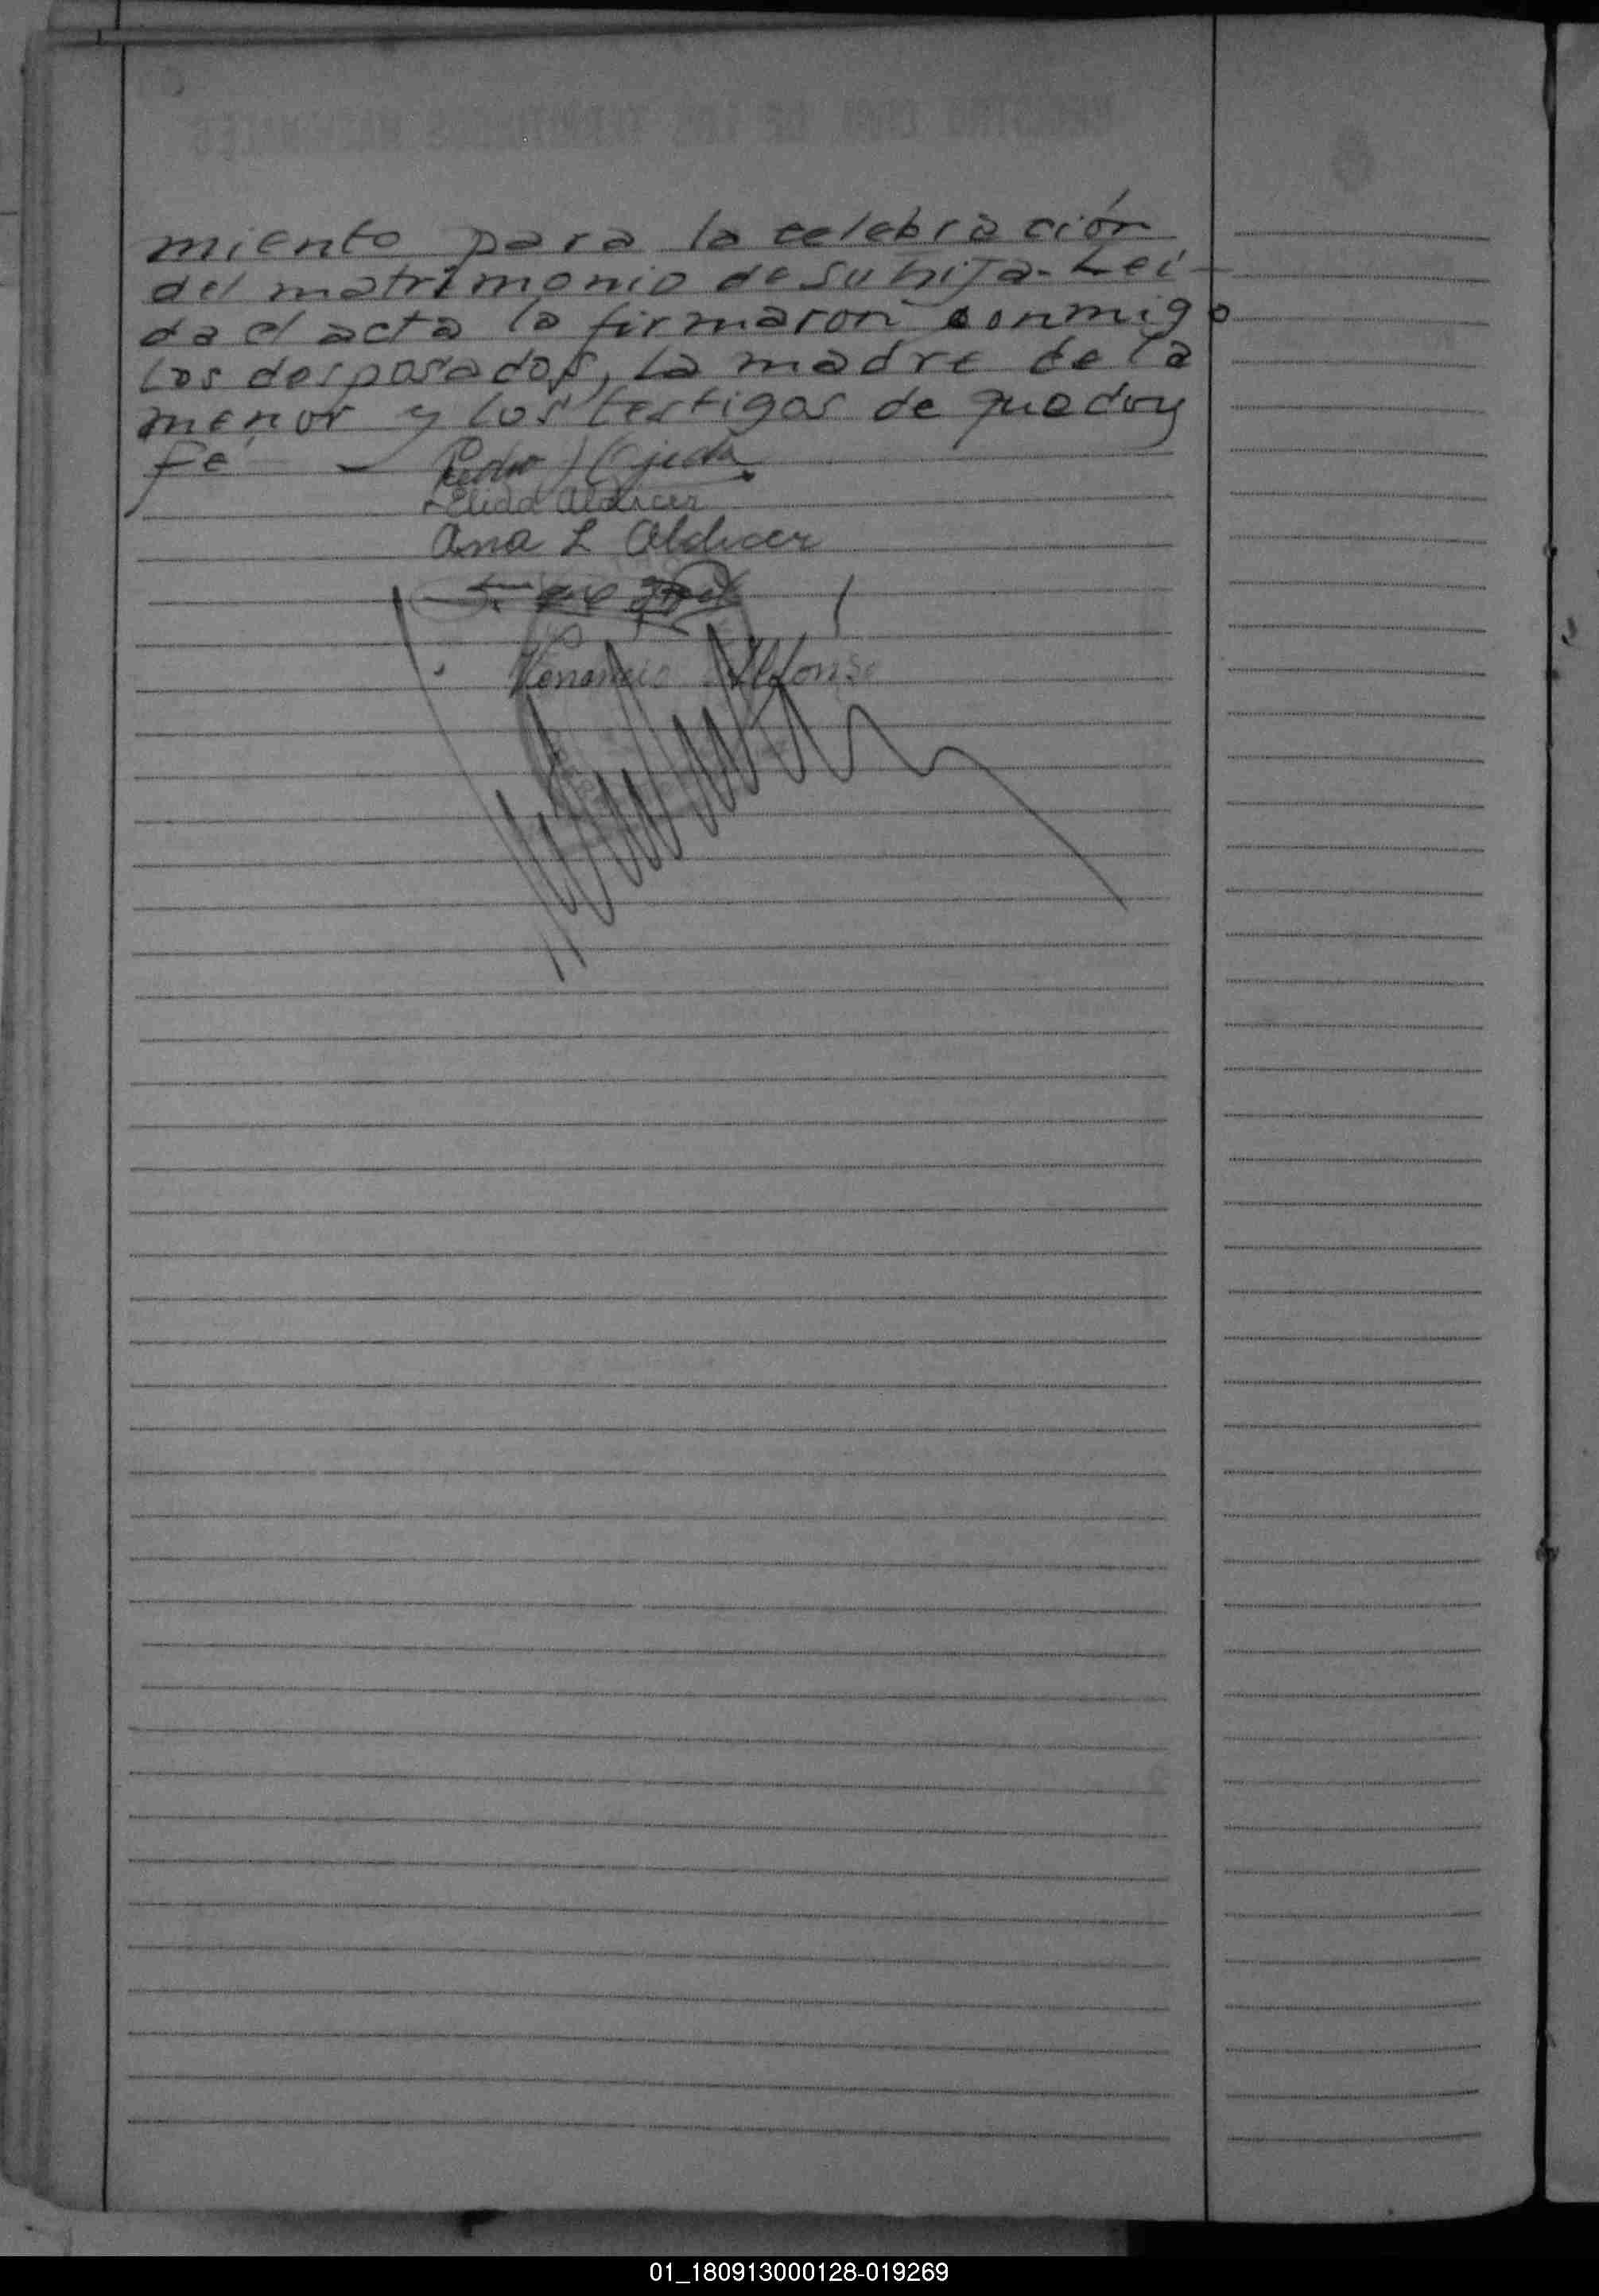 miento para la celebración
del matrimonio de su hija - Lei-
da el acta la firmaron conmigo
los desposados, la madre de la
menor y los testigos de que doy
fe —
Pedro Ojeda
Elida Aldicer
Ana L Aldicer
Venancio Alfonso
01_180913000128-019269